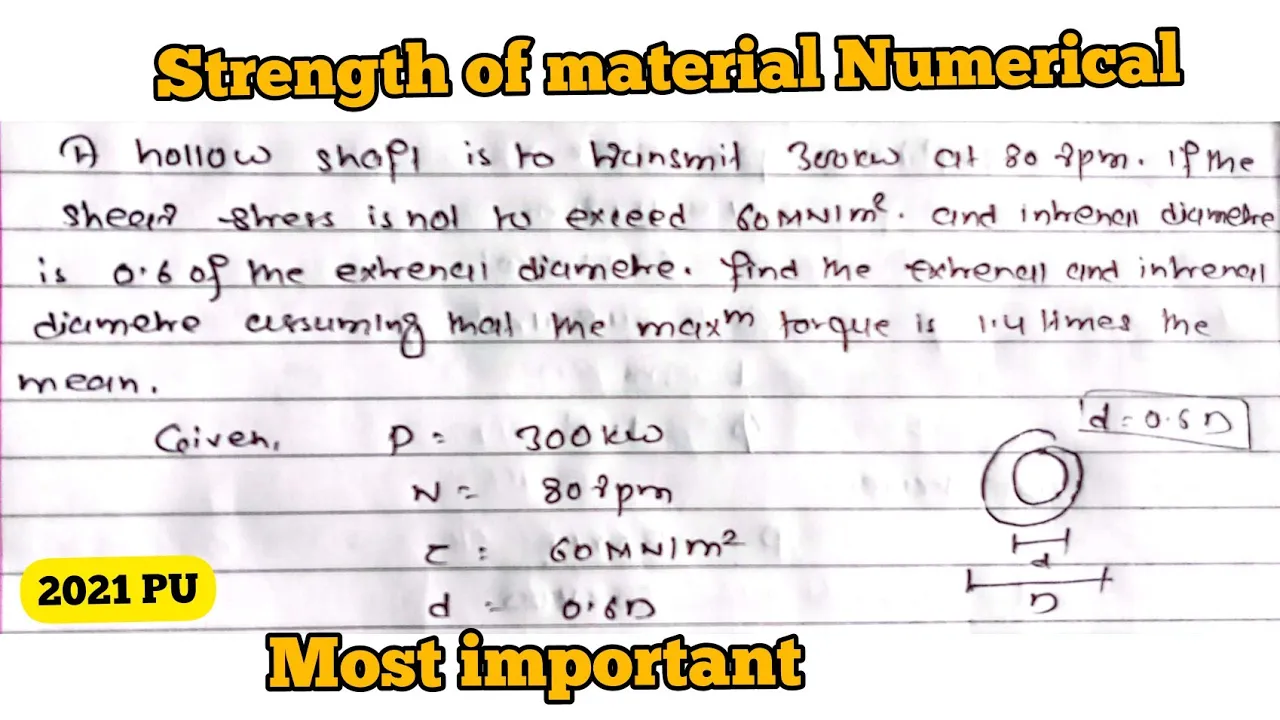 Strength of material Numerical
A hollow shaft is to transmit 300kw at 80 rpm. If the
shear stress is not to exceed 60 MN/m². and intrenal diametre
is 0.6 of the extrenal diametre. find the extrenal and intrenal
diametre assuming that the maxᵐ torque is 1.4 times the
mean.
d = 0.6 D
Given, P = 300 kw
N = 80 rpm
τ = 60 MN/m²
d
2021 PU
d = 0.6D
D
Most important